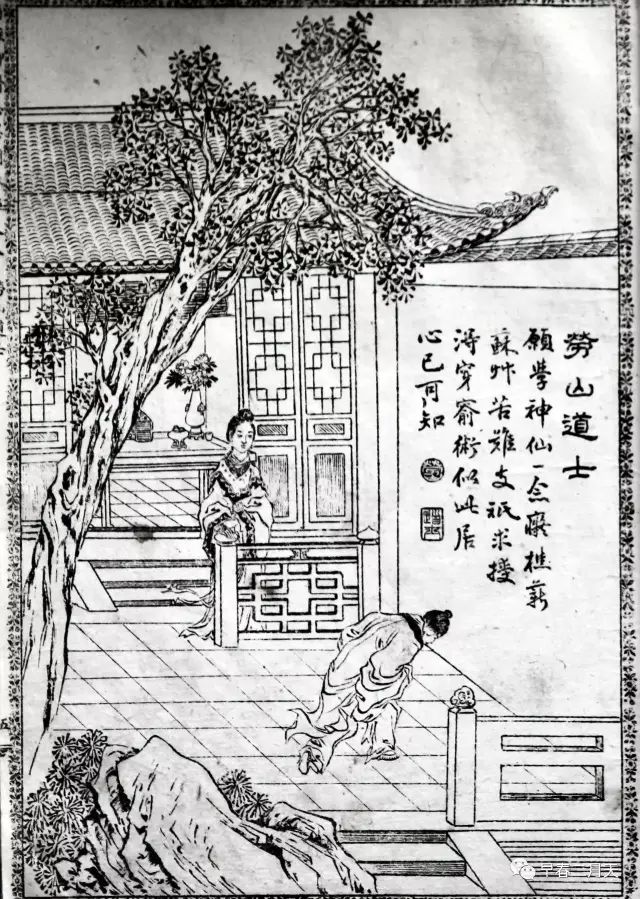 勞山道士
願學神仙一念癡樵薪
蘇艸苦難支祇求授
得穿窬術似此居
心已可知